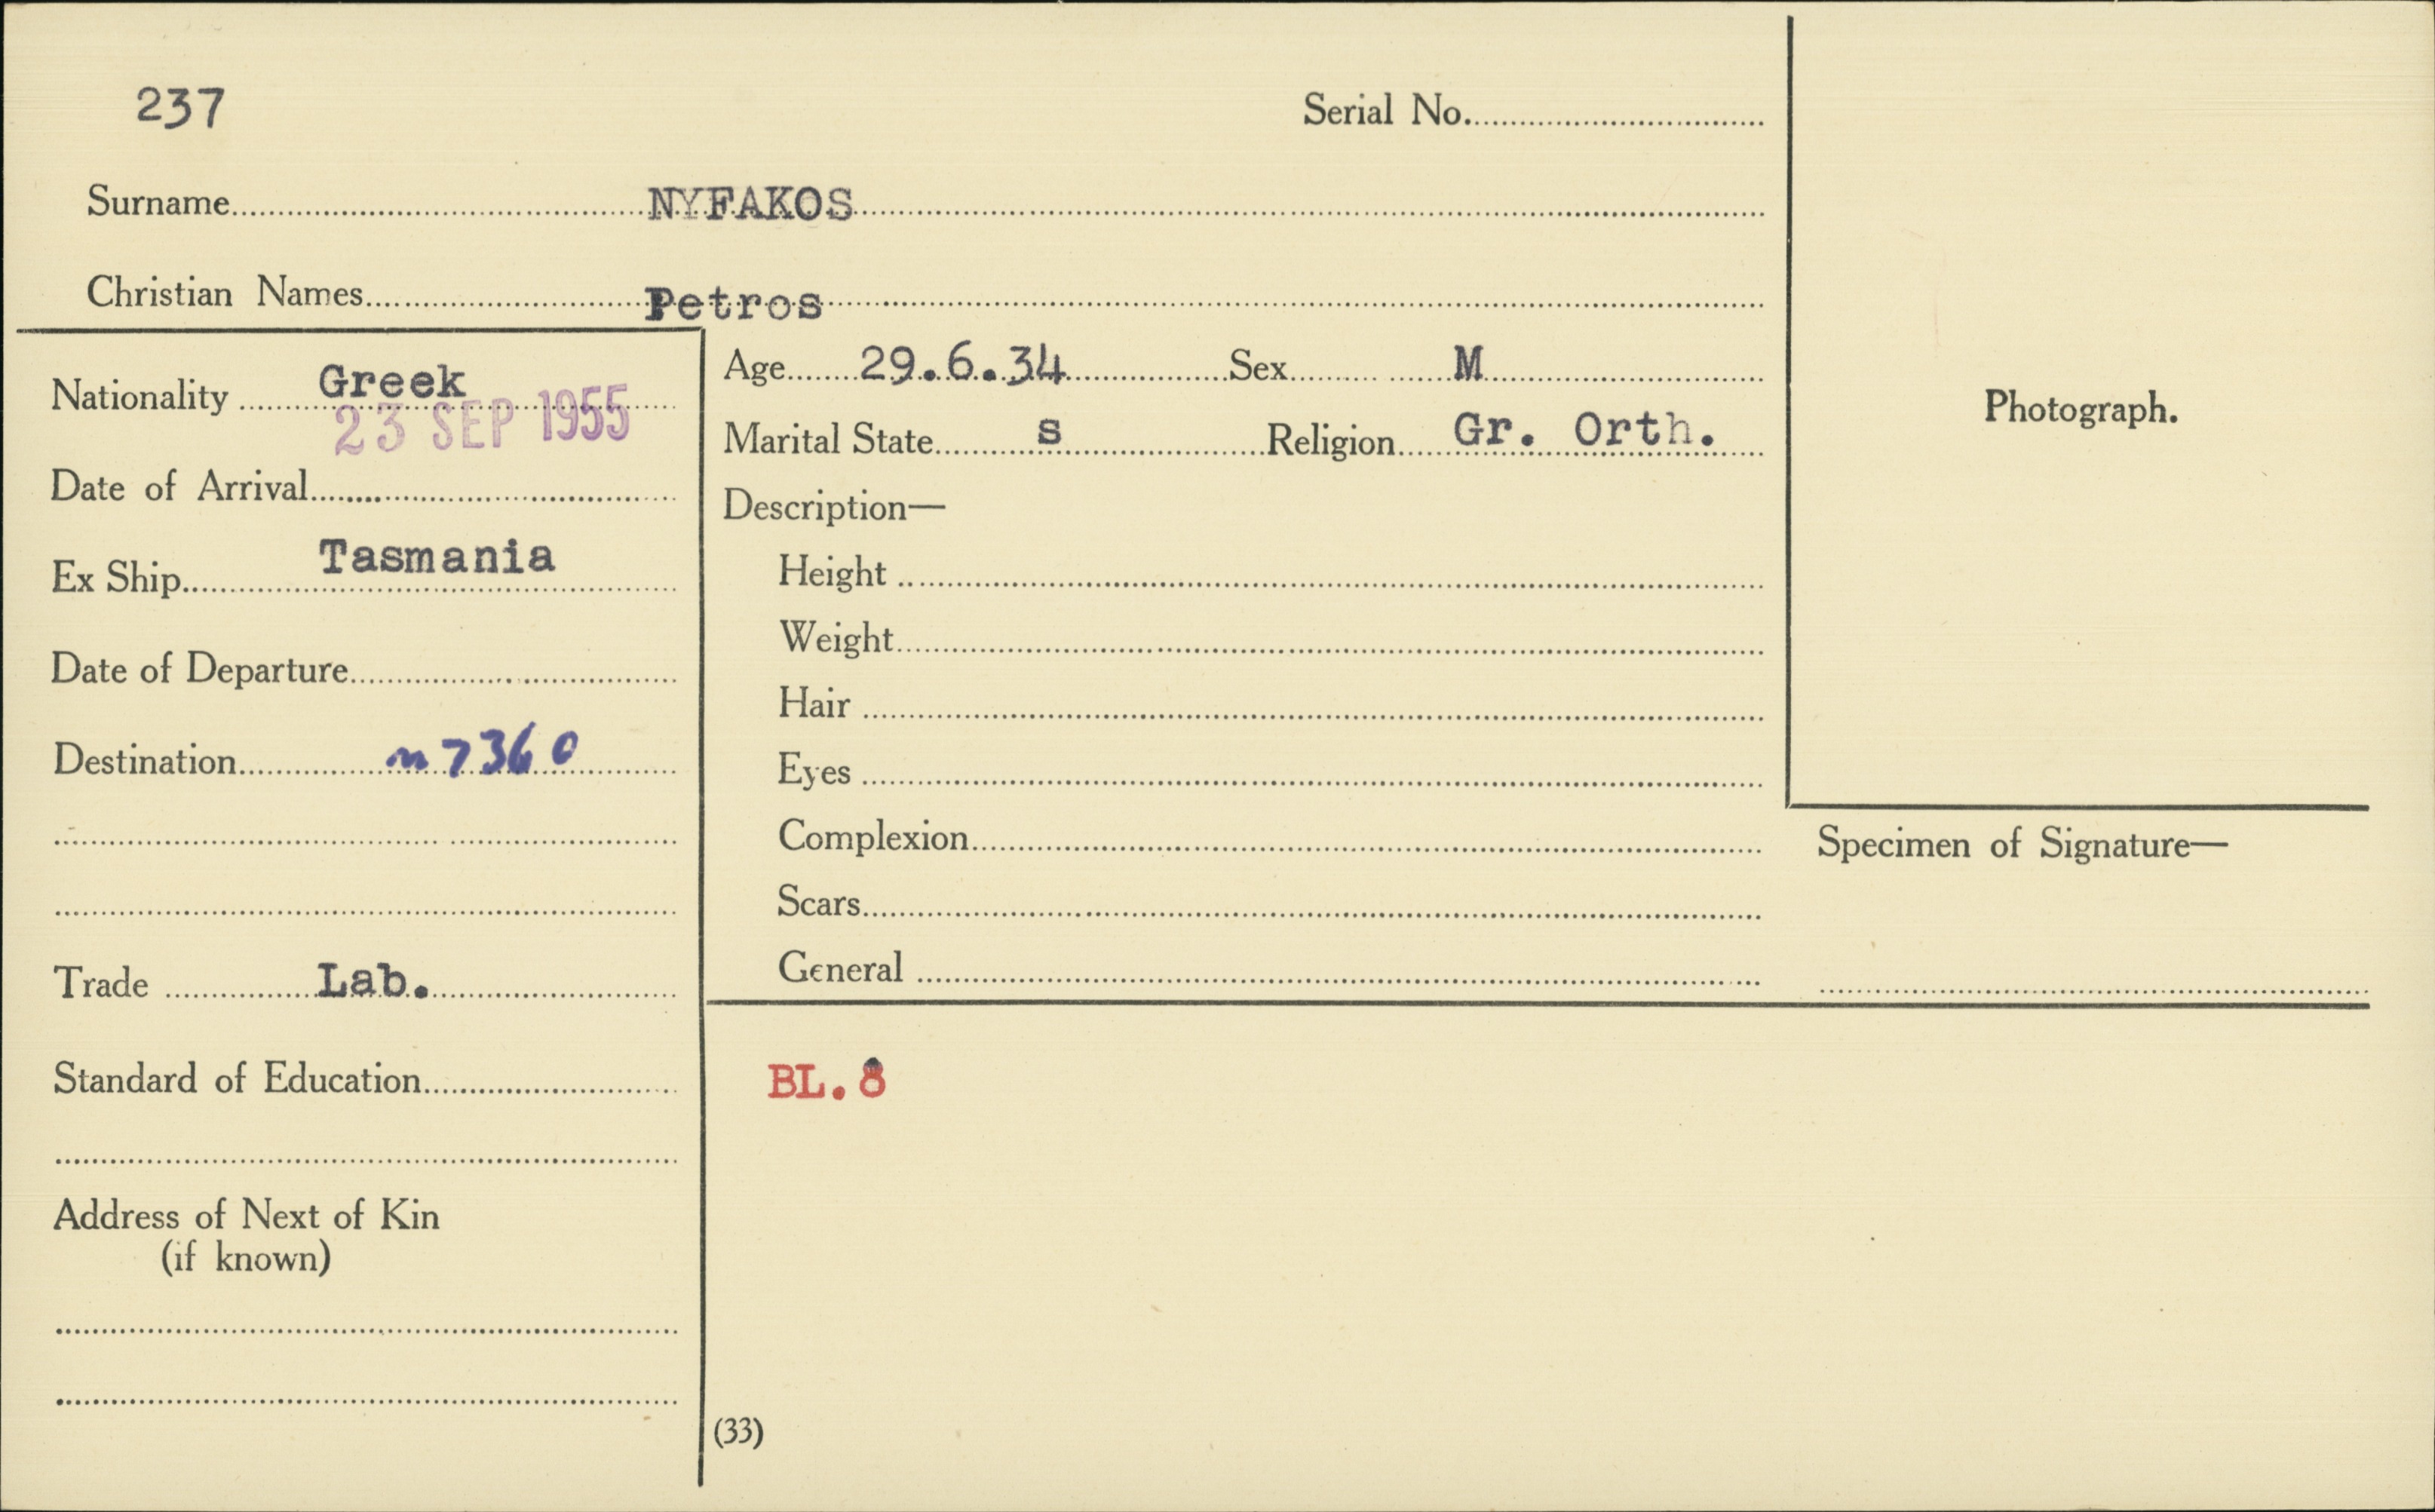 237
Serial No.
Surname NYFAKOS
Christian Names Petros
Nationality Greek
23 SEP 1955
Date of Arrival
Ex Ship Tasmania
Date of Departure
Destination n 7360
Trade Lab.
Standard of Education
Address of Next of Kin
(if known)
Age 29.6.34 Sex M
Marital State s Religion Gr. Orth.
Description—
Height
Weight
Hair
Eyes
Complexion
Scars
General
BL.8
(33)
Photograph.
Specimen of Signature—